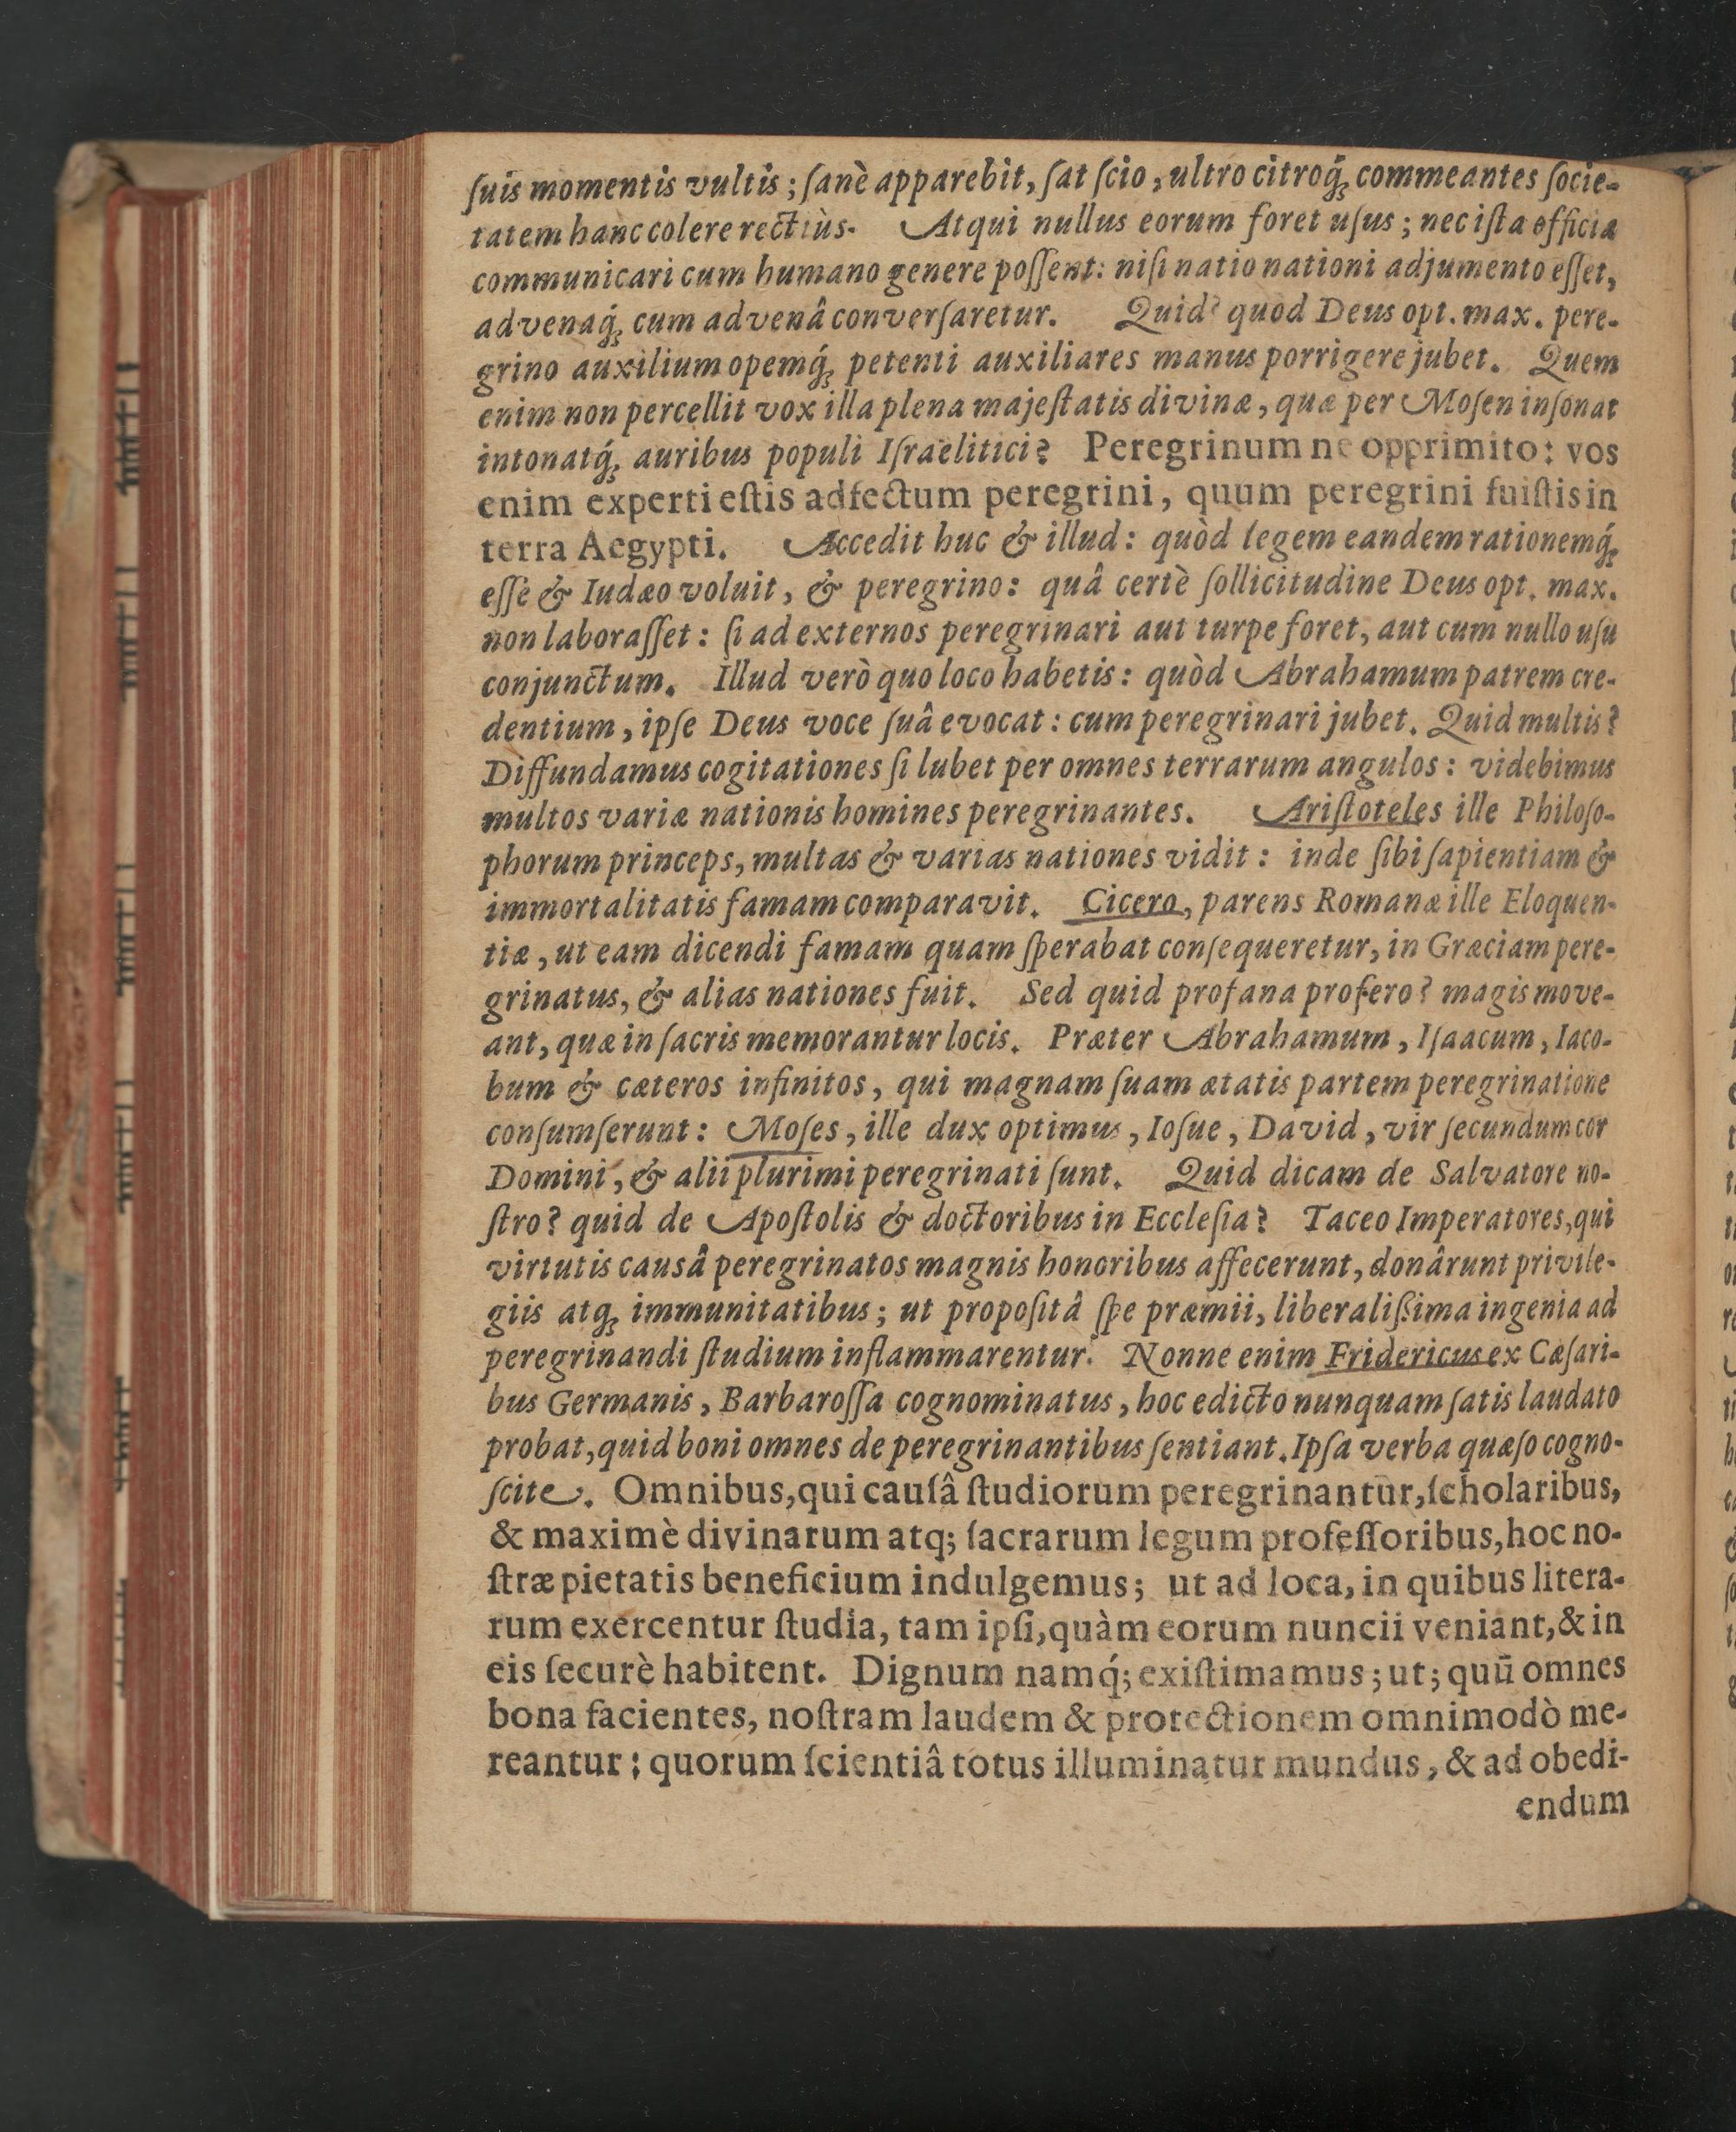 ſuis momentis vultis; ſanè apparebit, ſat ſcio, ultro citroq́; commeantes ſocie-
tatem hanc colere rectiùs. Atqui nullus eorum foret uſus; nec iſta officia
communicari cum humano genere poſſent: niſi natio nationi adjumento eſſet,
advenaq́; cum advenâ converſaretur. Quid? quod Deus opt. max. pere-
grino auxilium opemq́; petenti auxiliares manus porrigere jubet. Quem
enim non percellit vox illa plena majeſtatis divinæ, quæ per Moſen inſonat
intonatq́; auribus populi Iſraëlitici? Peregrinum ne opprimito: vos
enim experti eſtis adfectum peregrini, quum peregrini fuiſtis in
terra Aegypti. Accedit huc & illud: quòd legem eandem rationemq́;
eſſe & Iudæo voluit, & peregrino: quâ certè ſollicitudine Deus opt. max.
non laboraſſet: ſi ad externos peregrinari aut turpe foret, aut cum nullo uſu
conjunctum. Illud verò quo loco habetis: quòd Abrahamum patrem cre-
dentium, ipſe Deus voce ſuâ evocat: cum peregrinari jubet. Quid multis?
Diffundamus cogitationes ſi lubet per omnes terrarum angulos: videbimus
multos variæ nationis homines peregrinantes. Ariſtoteles ille Philoſo-
phorum princeps, multas & varias nationes vidit: inde ſibi ſapientiam &
immortalitatis famam comparavit. Cicero, parens Romanæ ille Eloquen-
tiæ, ut eam dicendi famam quam ſperabat conſequeretur, in Græciam pere-
grinatus, & alias nationes fuit. Sed quid profana profero? magis move-
ant, quæ in ſacris memorantur locis. Præter Abrahamum, Iſaacum, Iaco-
bum & cæteros infinitos, qui magnam ſuam ætatis partem peregrinatione
conſumſerunt: Moſes, ille dux optimus, Ioſue, David, vir ſecundum cor
Domini, & alii plurimi peregrinati ſunt. Quid dicam de Salvatore no-
ſtro? quid de Apoſtolis & doctoribus in Eccleſia? Taceo Imperatores, qui
virtutis causâ peregrinatos magnis honoribus affecerunt, donârunt privile-
giis atq; immunitatibus; ut propoſitâ ſpe præmii, liberaliſsima ingenia ad
peregrinandi ſtudium inflammarentur. Nonne enim Fridericus ex Cæſari-
bus Germanis, Barbaroſſa cognominatus, hoc edicto nunquam ſatis laudato
probat, quid boni omnes de peregrinantibus ſentiant. Ipſa verba quæſo cogno-
ſcite. Omnibus, qui cauſâ ſtudiorum peregrinantur, ſcholaribus,
& maximè divinarum atq; ſacrarum legum profeſſoribus, hoc no-
ſtræ pietatis beneficium indulgemus; ut ad loca, in quibus litera-
rum exercentur ſtudia, tam ipſi, quàm eorum nuncii veniant, & in
eis ſecurè habitent. Dignum namq́; exiſtimamus; ut; quū omnes
bona facientes, noſtram laudem & protectionem omnimodò me-
reantur; quorum ſcientiâ totus illuminatur mundus, & ad obedi-
endum